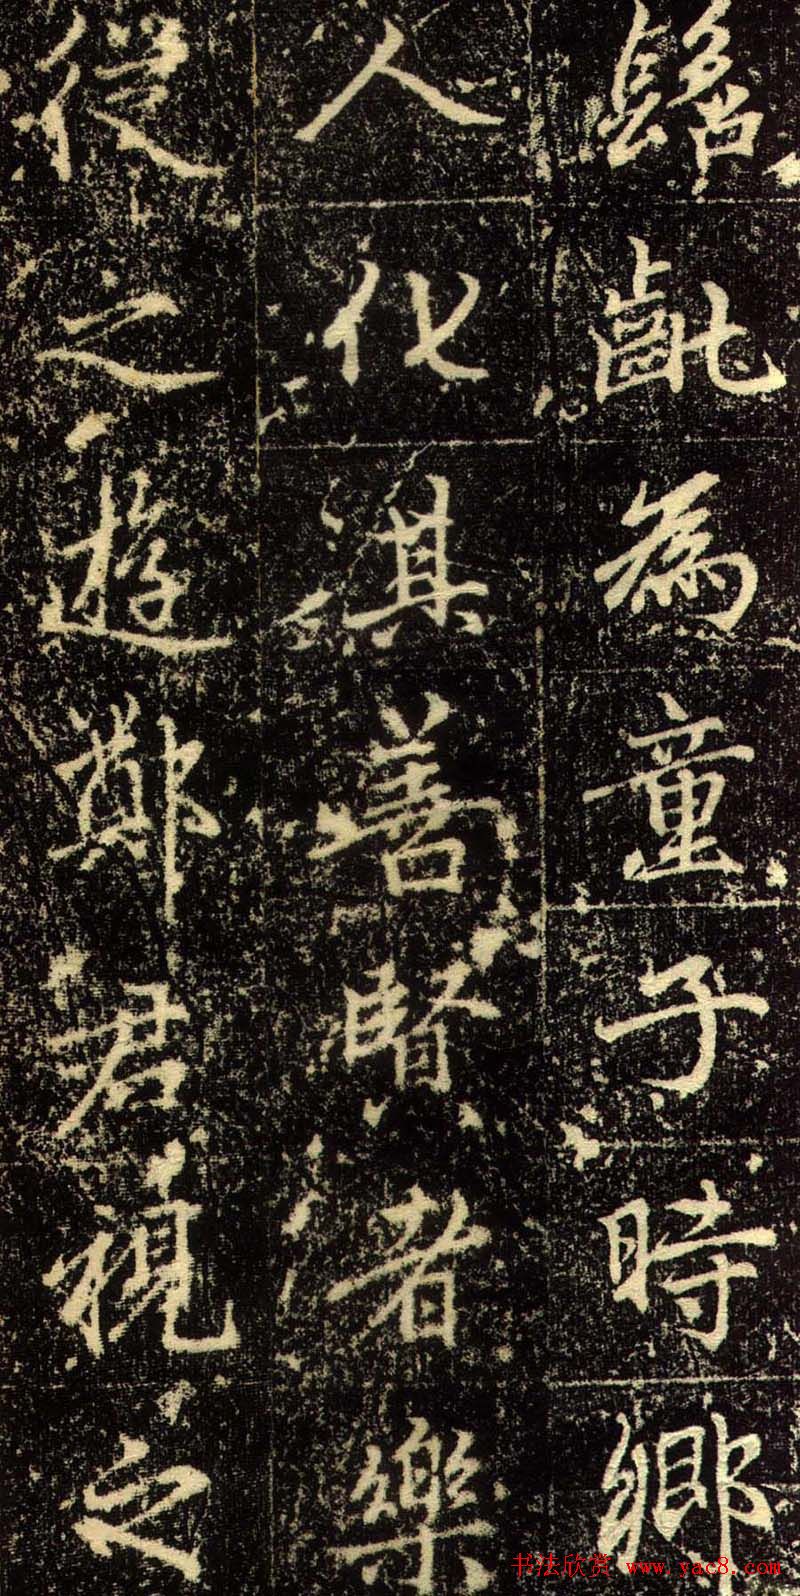 髫齓為童子時鄉
人化其善賢者樂
從之遊鄭君視之
书法欣赏 www.yac8.com